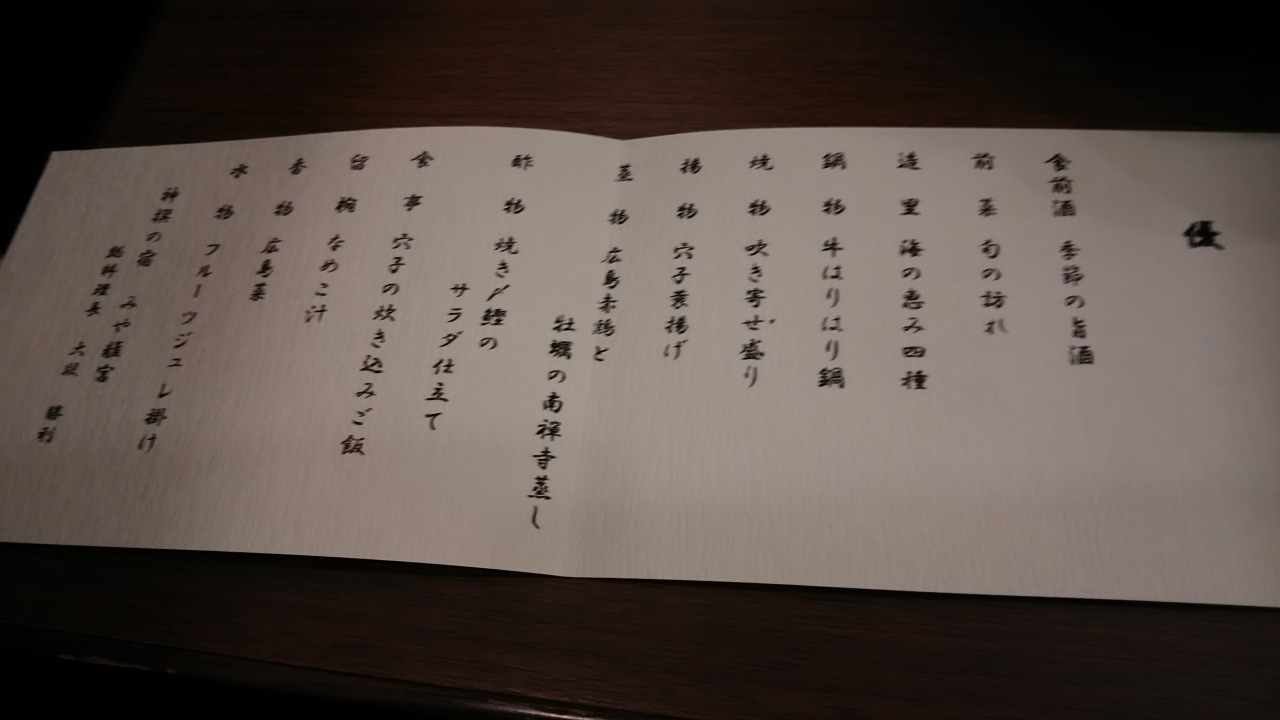 優
食前酒 季節の旨酒
前菜 旬の訪れ
造里 海の恵み四種
鍋物 牛はりはり鍋
焼物 吹き寄せ盛り
揚物 穴子蓑揚げ
蒸物 広島赤鶏と
牡蠣の南禅寺蒸し
酢物 焼き〆鰹の
サラダ仕立て
食事 穴子の炊き込みご飯
留椀 なめこ汁
香物 広島菜
水物 フルーツジュレ掛け
神撰の宿 みや離宮
総料理長 大 勝利